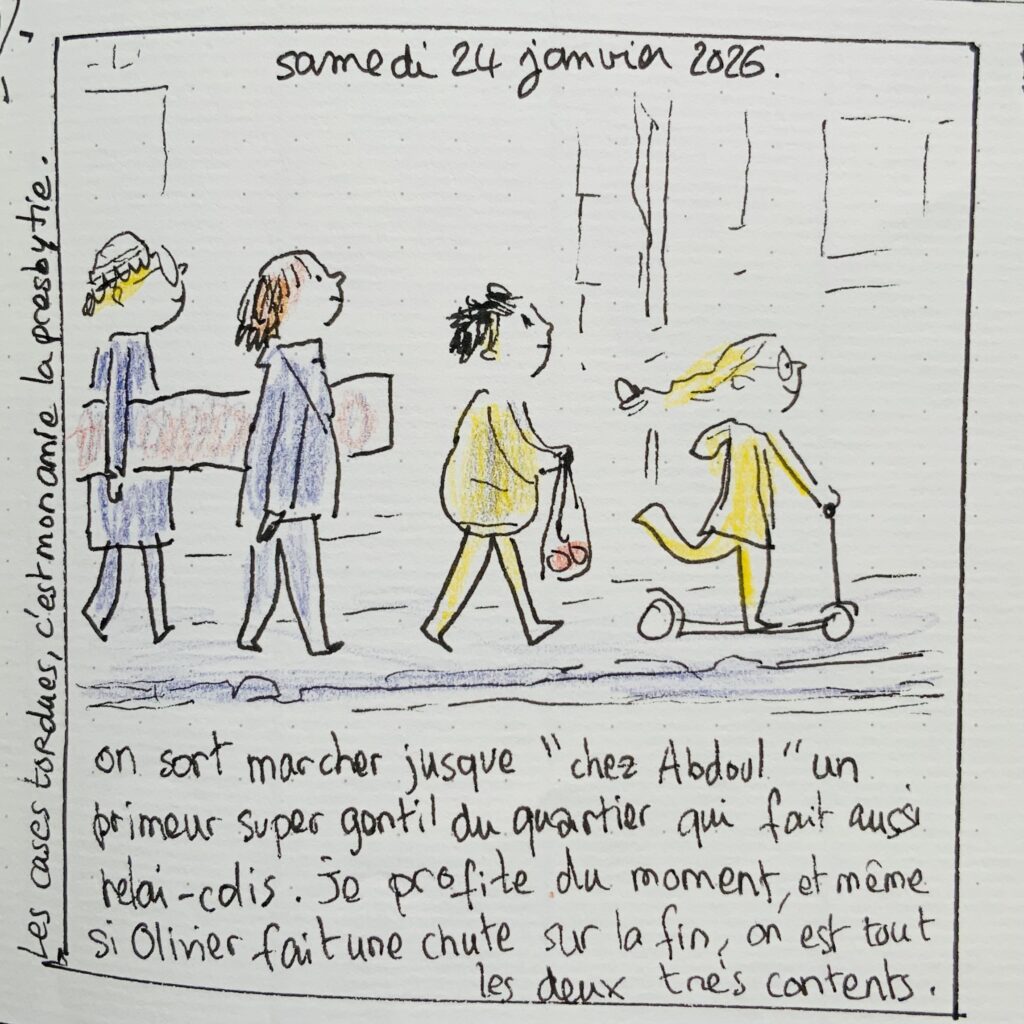 samedi 24 janvier 2026.
Les cases tordues, c'est mon amie la presbytie.
on sort marcher jusque "chez Abdoul" un
primeur super gentil du quartier qui fait aussi
relai-colis. je profite du moment, et même
si Olivier fait une chute sur la fin, on est tout
les deux très contents.